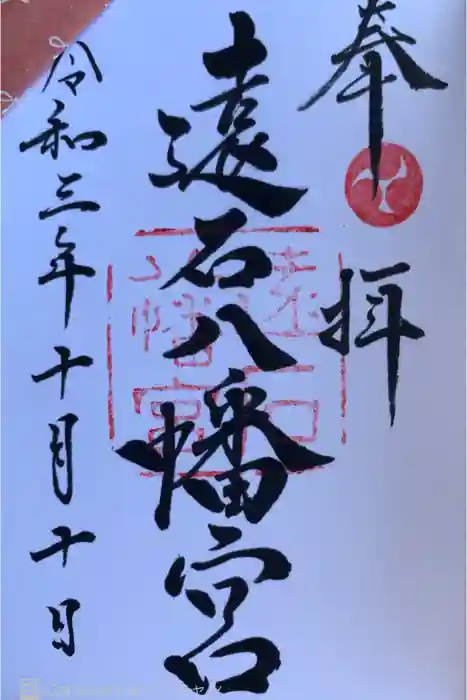 奉拝
遠石八幡宮
令和三年十月十日
遠石
八幡宮